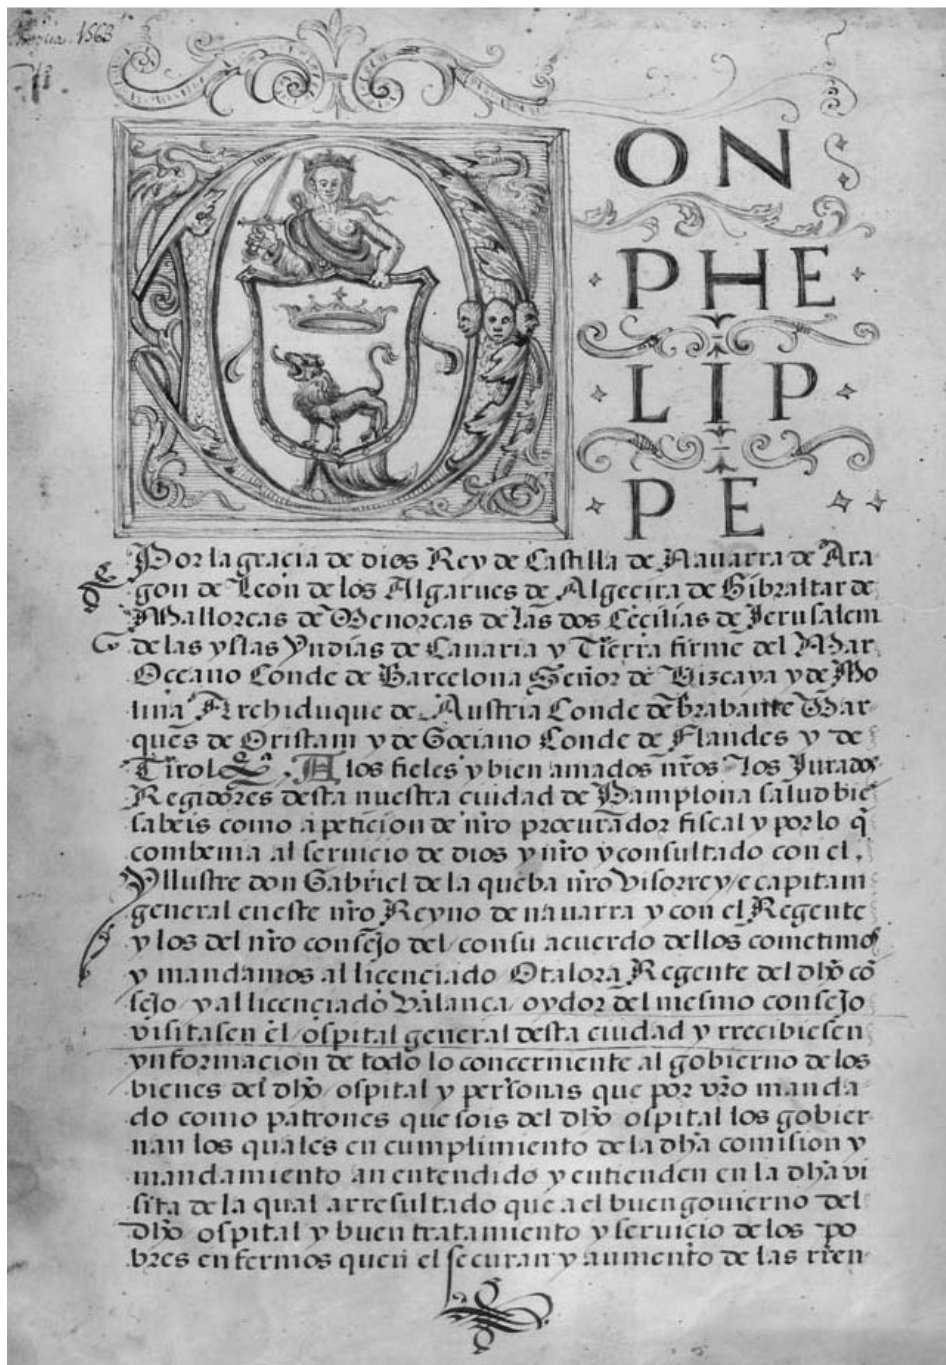 1563
DON
PHE
LIP
PE
Por la gracia de dios Rey de Castilla de Nauarra de Ara
gon de Leon de los Algarues de Algecira de Gibraltar de
Mallorcas de Menorcas de las dos Cecilias de Jerusalem
de las yslas Yndias de Canaria y Tierra firme del Mar
Occeano Conde de Barcelona Señor de Vizcaya y de Mo
lina Archiduque de Austria Conde de Brabante Mar
ques de Oristam y de Gociano Conde de Flandes y de
Tirol &c. A los fieles y bien amados nros los Jurados
Regidores desta nuestra ciudad de Pamplona salud bie
sabeis como a peticion de nro procurador fiscal y por lo q̃
combenia al seruicio de dios y nro y consultado con el
Yllustre don Gabriel de la queba nro Visorrey e capitam
general en este nro Reyno de nauarra y con el Regente
y los del nro consejo del consu acuerdo dellos cometimos
y mandamos al licenciado Otalora Regente del dho cõ
sejo y al licenciado Valança oydor del mesmo consejo
visitasen el ospital general desta ciudad y rrecibiesen
ynformacion de todo lo concerniente al gobierno de los
bienes del dho ospital y personas que por vro manda
do como patrones que sois del dho ospital los gobier
nan los quales en cumplimiento de la dha comision y
mandamiento an entendido y entienden en la dha vi
sita de la qual a rresultado que a el buen gouierno del
dho ospital y buen tratamiento y seruicio de los po
bres enfermos quen el se curan y aumento de las rren